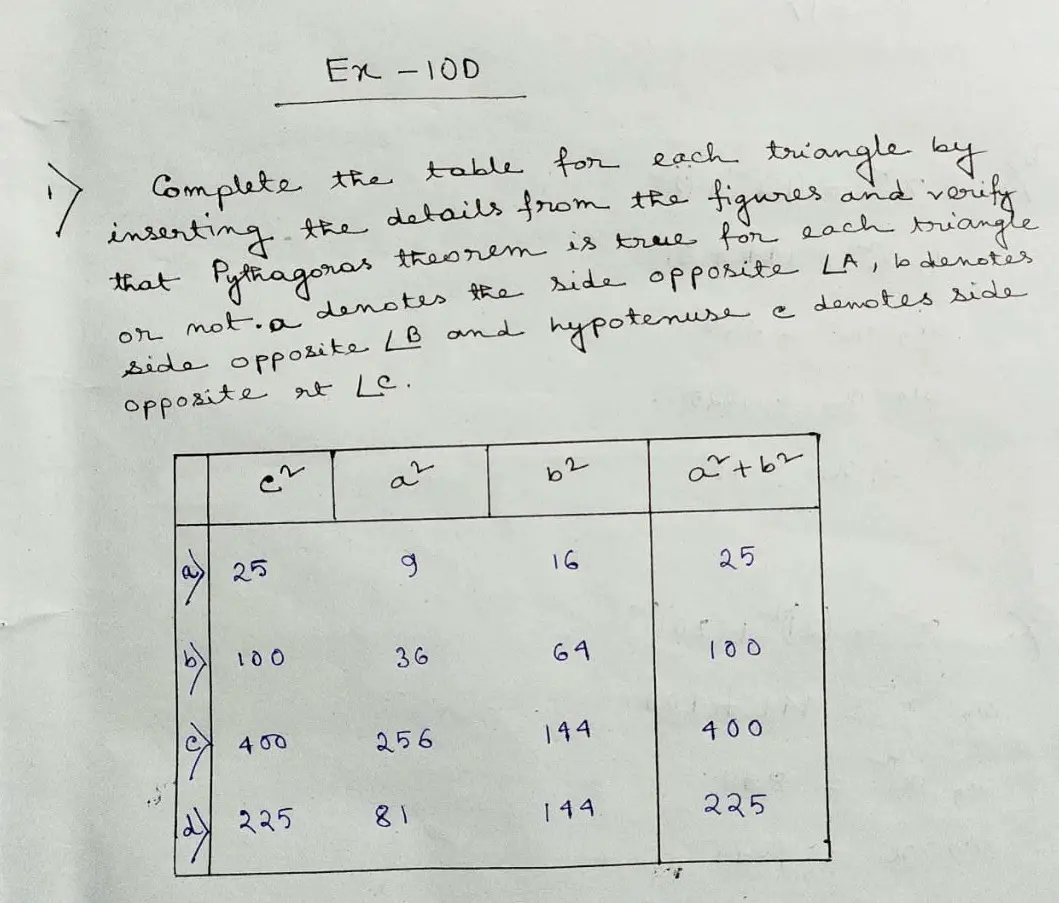 Ex - 10D
1) Complete the table for each triangle by
inserting the details from the figures and verify
that Pythagoras theorem is true for each triangle
or not. a denotes the side opposite ∠A, b denotes
side opposite ∠B and hypotenuse c denotes side
opposite rt ∠C.
c² a² b² a²+b²
a) 25 9 16 25
b) 100 36 64 100
c) 400 256 144 400
d) 225 81 144 225